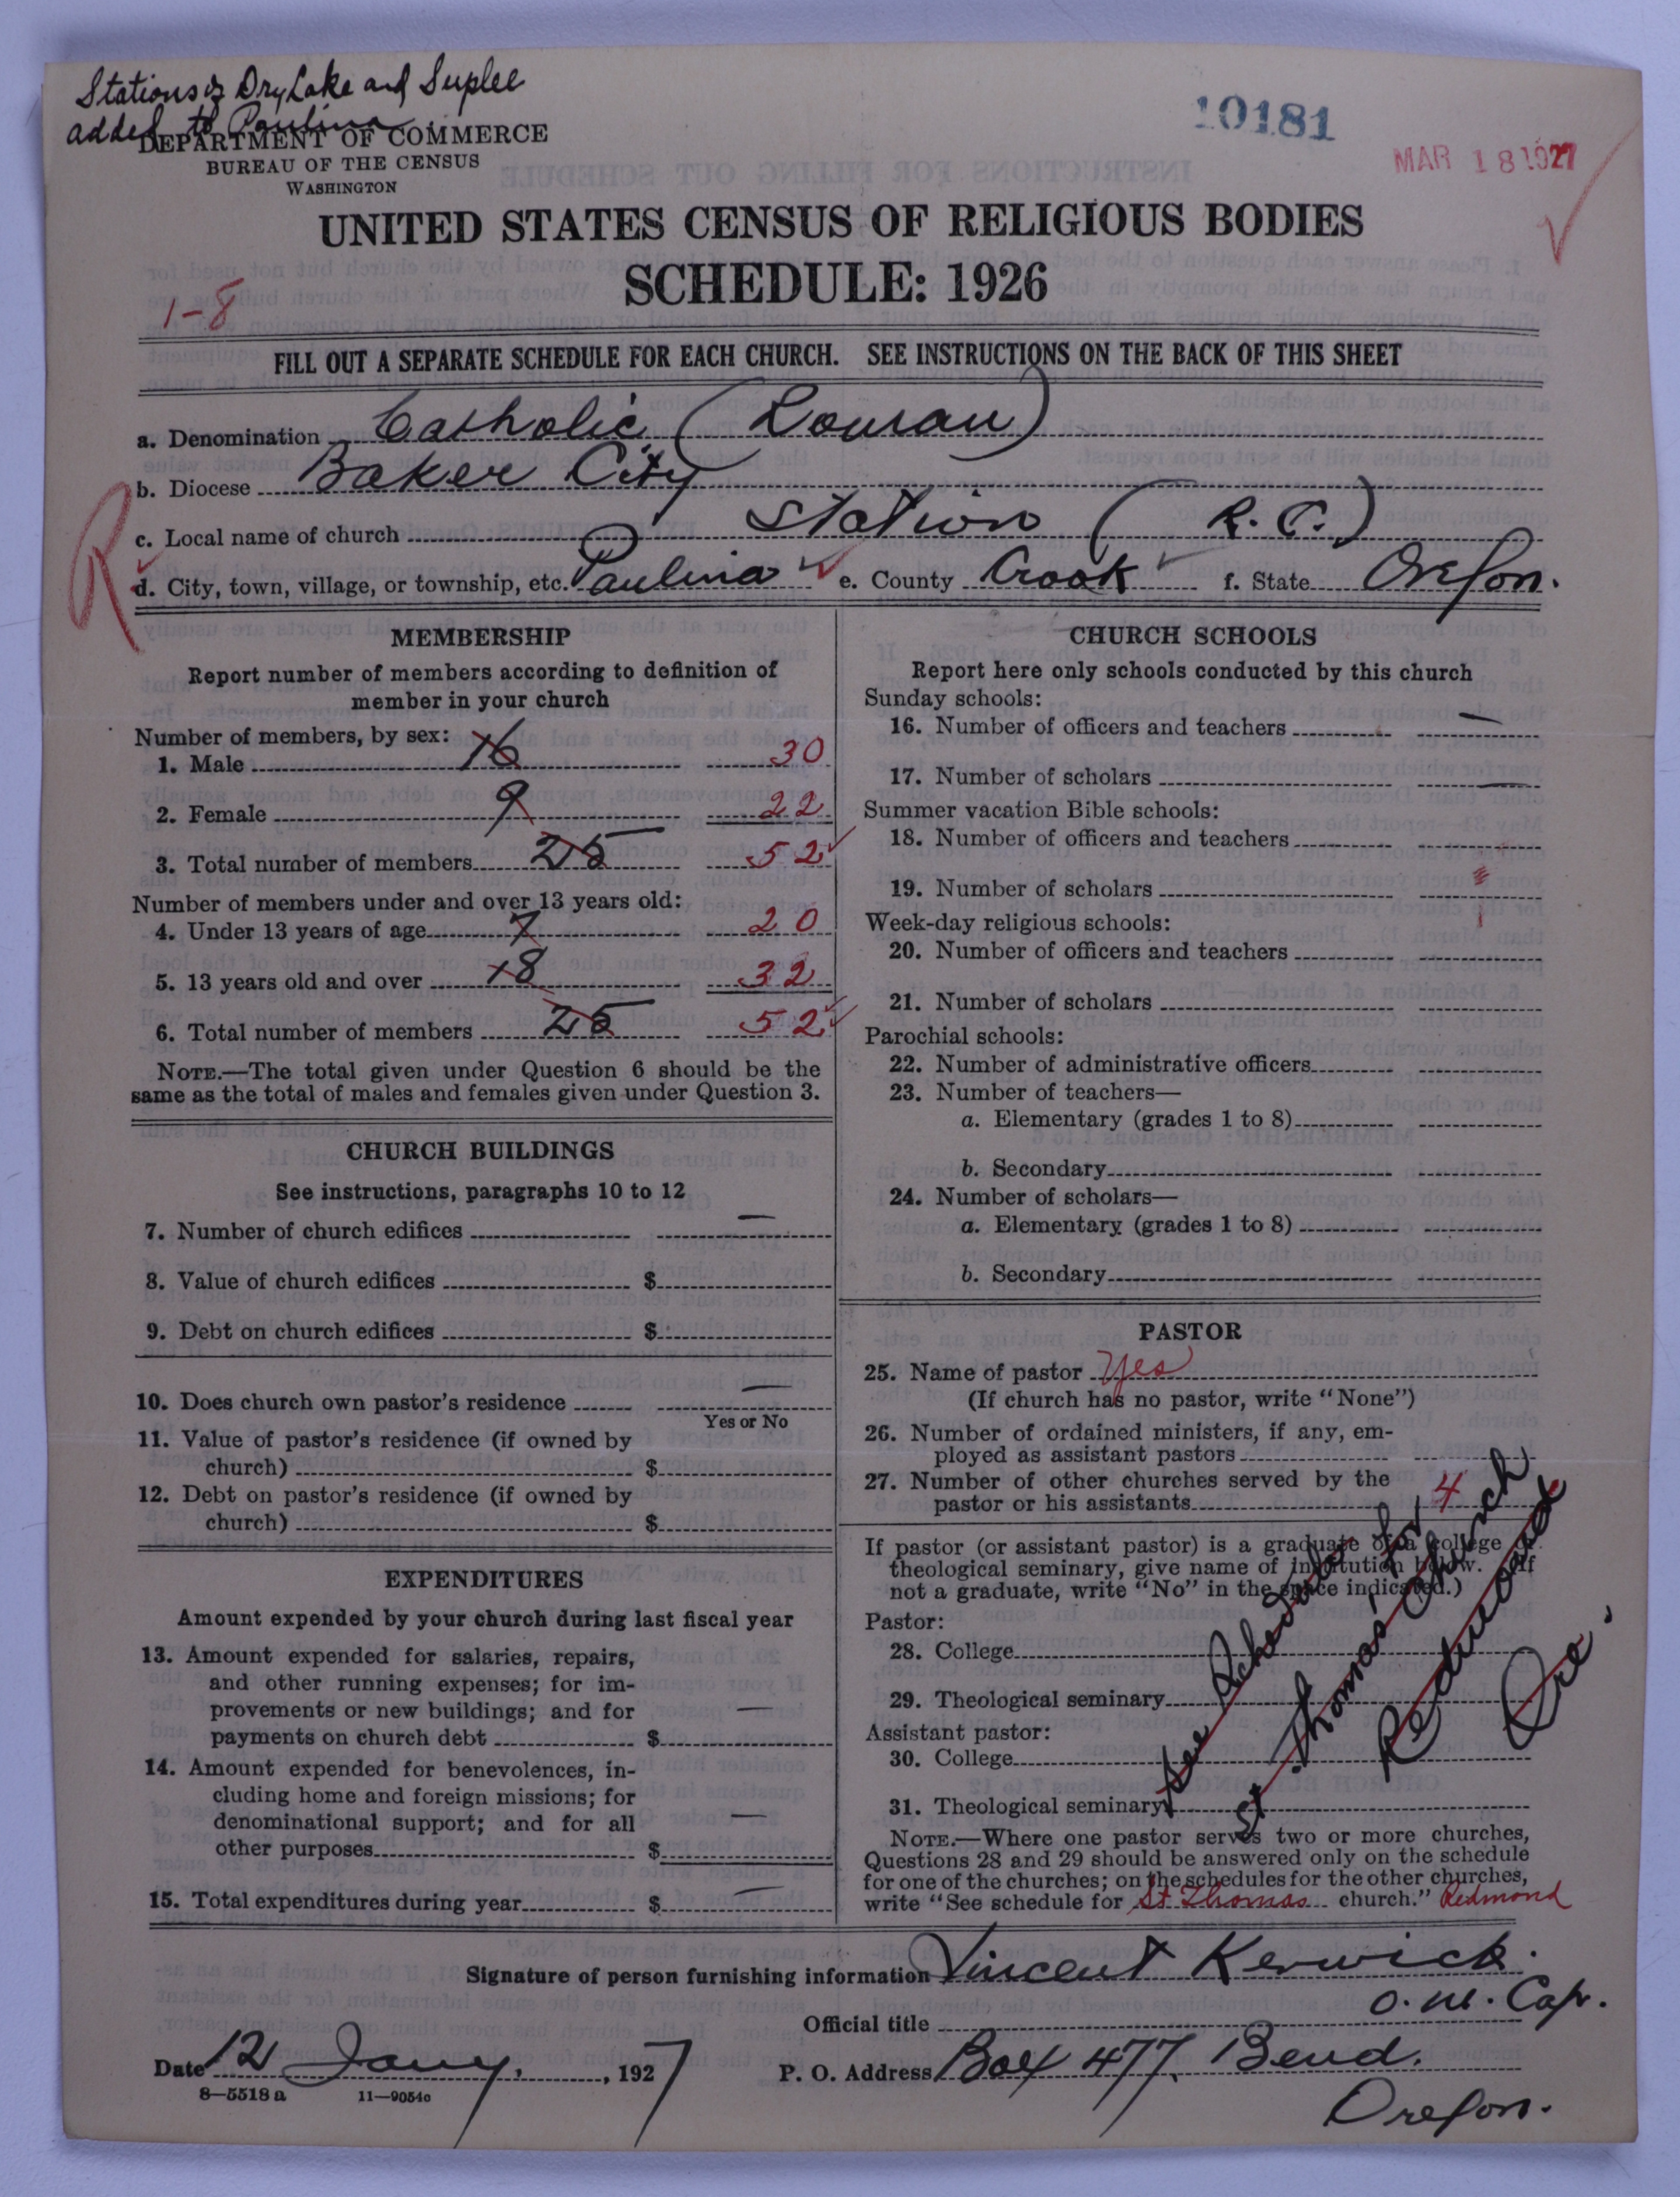 Stations of Dry Lake and Suplee
added to Paulina
10181
MAR 18 1927
DEPARTMENT OF COMMERCE
BUREAU OF THE CENSUS
WASHINGTON
UNITED STATES CENSUS OF RELIGIOUS BODIES
SCHEDULE: 1926
1-8
FILL OUT A SEPARATE SCHEDULE FOR EACH CHURCH. SEE INSTRUCTIONS ON THE BACK OF THIS SHEET
a. Denomination Catholic (Roman)
b. Diocese Baker City
c. Local name of church Station (R.C.)
R
d. City, town, village, or township, etc. Paulina e. County Crook f. State Oregon.
MEMBERSHIP
Report number of members according to definition of
member in your church
Number of members, by sex:
1. Male 16 30
2. Female 9 22
3. Total number of members 25 52
Number of members under and over 13 years old:
4. Under 13 years of age 7 20
5. 13 years old and over 18 32
6. Total number of members 25 52
NOTE.—The total given under Question 6 should be the
same as the total of males and females given under Question 3.
CHURCH BUILDINGS
See instructions, paragraphs 10 to 12
7. Number of church edifices —
8. Value of church edifices $
9. Debt on church edifices $
10. Does church own pastor's residence —
Yes or No
11. Value of pastor's residence (if owned by
church) $
12. Debt on pastor's residence (if owned by
church) $
EXPENDITURES
Amount expended by your church during last fiscal year
13. Amount expended for salaries, repairs,
and other running expenses; for im-
provements or new buildings; and for
payments on church debt $ —
14. Amount expended for benevolences, in-
cluding home and foreign missions; for
denominational support; and for all
other purposes $ —
15. Total expenditures during year $ —
CHURCH SCHOOLS
Report here only schools conducted by this church
Sunday schools:
16. Number of officers and teachers —
17. Number of scholars —
Summer vacation Bible schools:
18. Number of officers and teachers
19. Number of scholars
Week-day religious schools:
20. Number of officers and teachers
21. Number of scholars
Parochial schools:
22. Number of administrative officers
23. Number of teachers—
a. Elementary (grades 1 to 8)
b. Secondary
24. Number of scholars—
a. Elementary (grades 1 to 8)
b. Secondary
PASTOR
25. Name of pastor Yes
(If church has no pastor, write "None")
26. Number of ordained ministers, if any, em-
ployed as assistant pastors
27. Number of other churches served by the
pastor or his assistants 4
If pastor (or assistant pastor) is a graduate of a college or
theological seminary, give name of institution below. (If
not a graduate, write "No" in the space indicated.)
Pastor:
28. College
29. Theological seminary
Assistant pastor:
30. College
31. Theological seminary
See Schedule for
St. Thomas' Church
Redmond
Ore.
NOTE.—Where one pastor serves two or more churches,
Questions 28 and 29 should be answered only on the schedule
for one of the churches; on the schedules for the other churches,
write "See schedule for St Thomas church." Redmond
Signature of person furnishing information Vincent Kerwick.
Official title O. M. Cap.
Date 12 Jany, 1927 P. O. Address Box 477. Bend.
Oregon.
8—5518 a 11—9054c